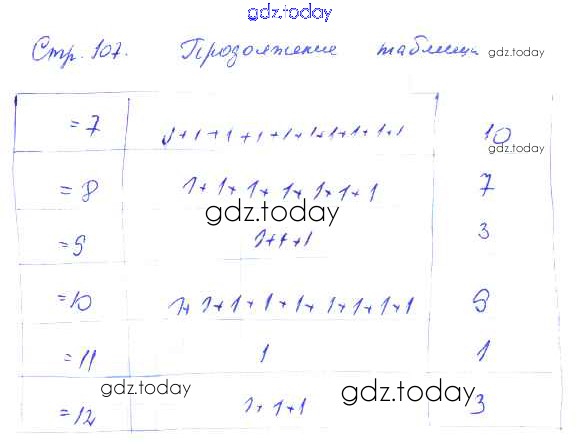 gdz.today
Стр. 107. Продолжение таблицы gdz.today
=7 1+1+1+1+1+1+1+1+1+1 10
gdz.today
=8 1+1+1+1+1+1+1 7
gdz.today
=9 1+1+1 3
=10 1+1+1+1+1+1+1+1+1 9
=11 1 1
gdz.today gdz.today
=12 1+1+1 3